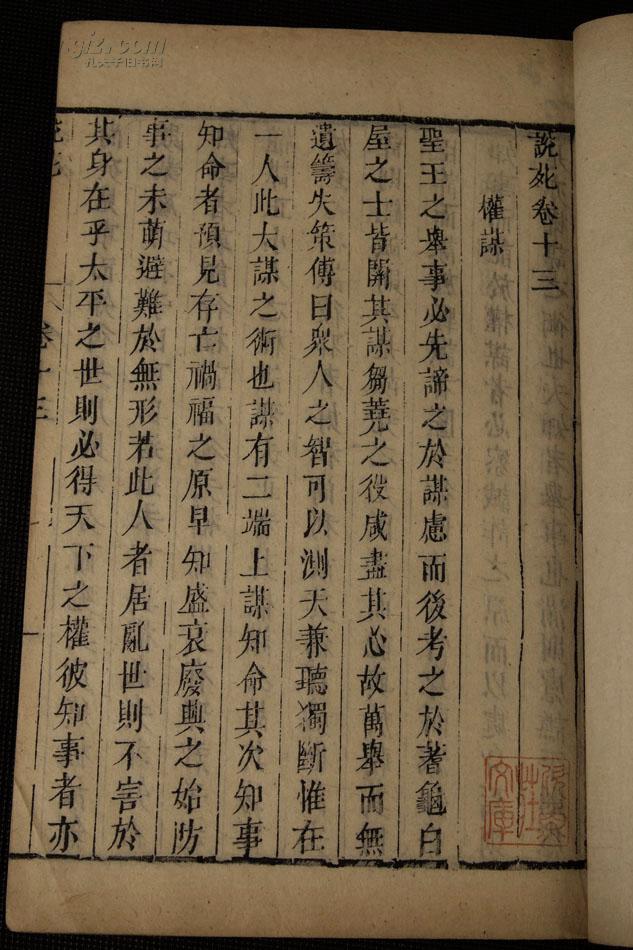 說苑卷十三
權謀
聖王之舉事必先諦之於謀慮而後考之於蓍龜白
屋之士皆關其謀芻蕘之役咸盡其心故萬舉而無
遺籌失策傳曰衆人之智可以測天兼聽獨斷惟在
一人此大謀之術也謀有二端上謀知命其次知事
知命者預見存亡禍福之原早知盛衰廢興之始防
事之未萌避難於無形若此人者居亂世則不害於
其身在乎太平之世則必得天下之權彼知事者亦
說苑
卷十三
文庫
孔夫子旧书网